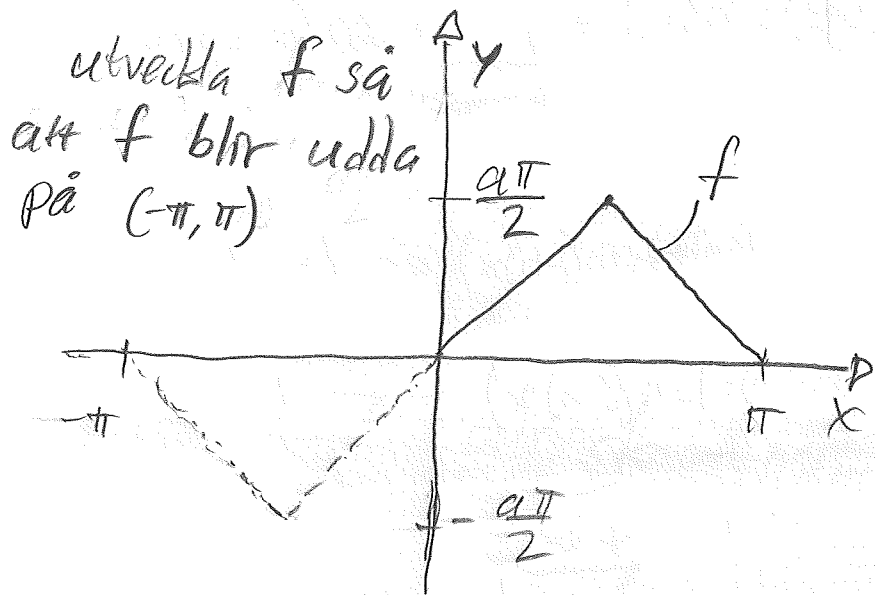 utveckla f så
att f blir udda
på (-π, π)
Y
aπ/2
f
-π
π
X
- aπ/2